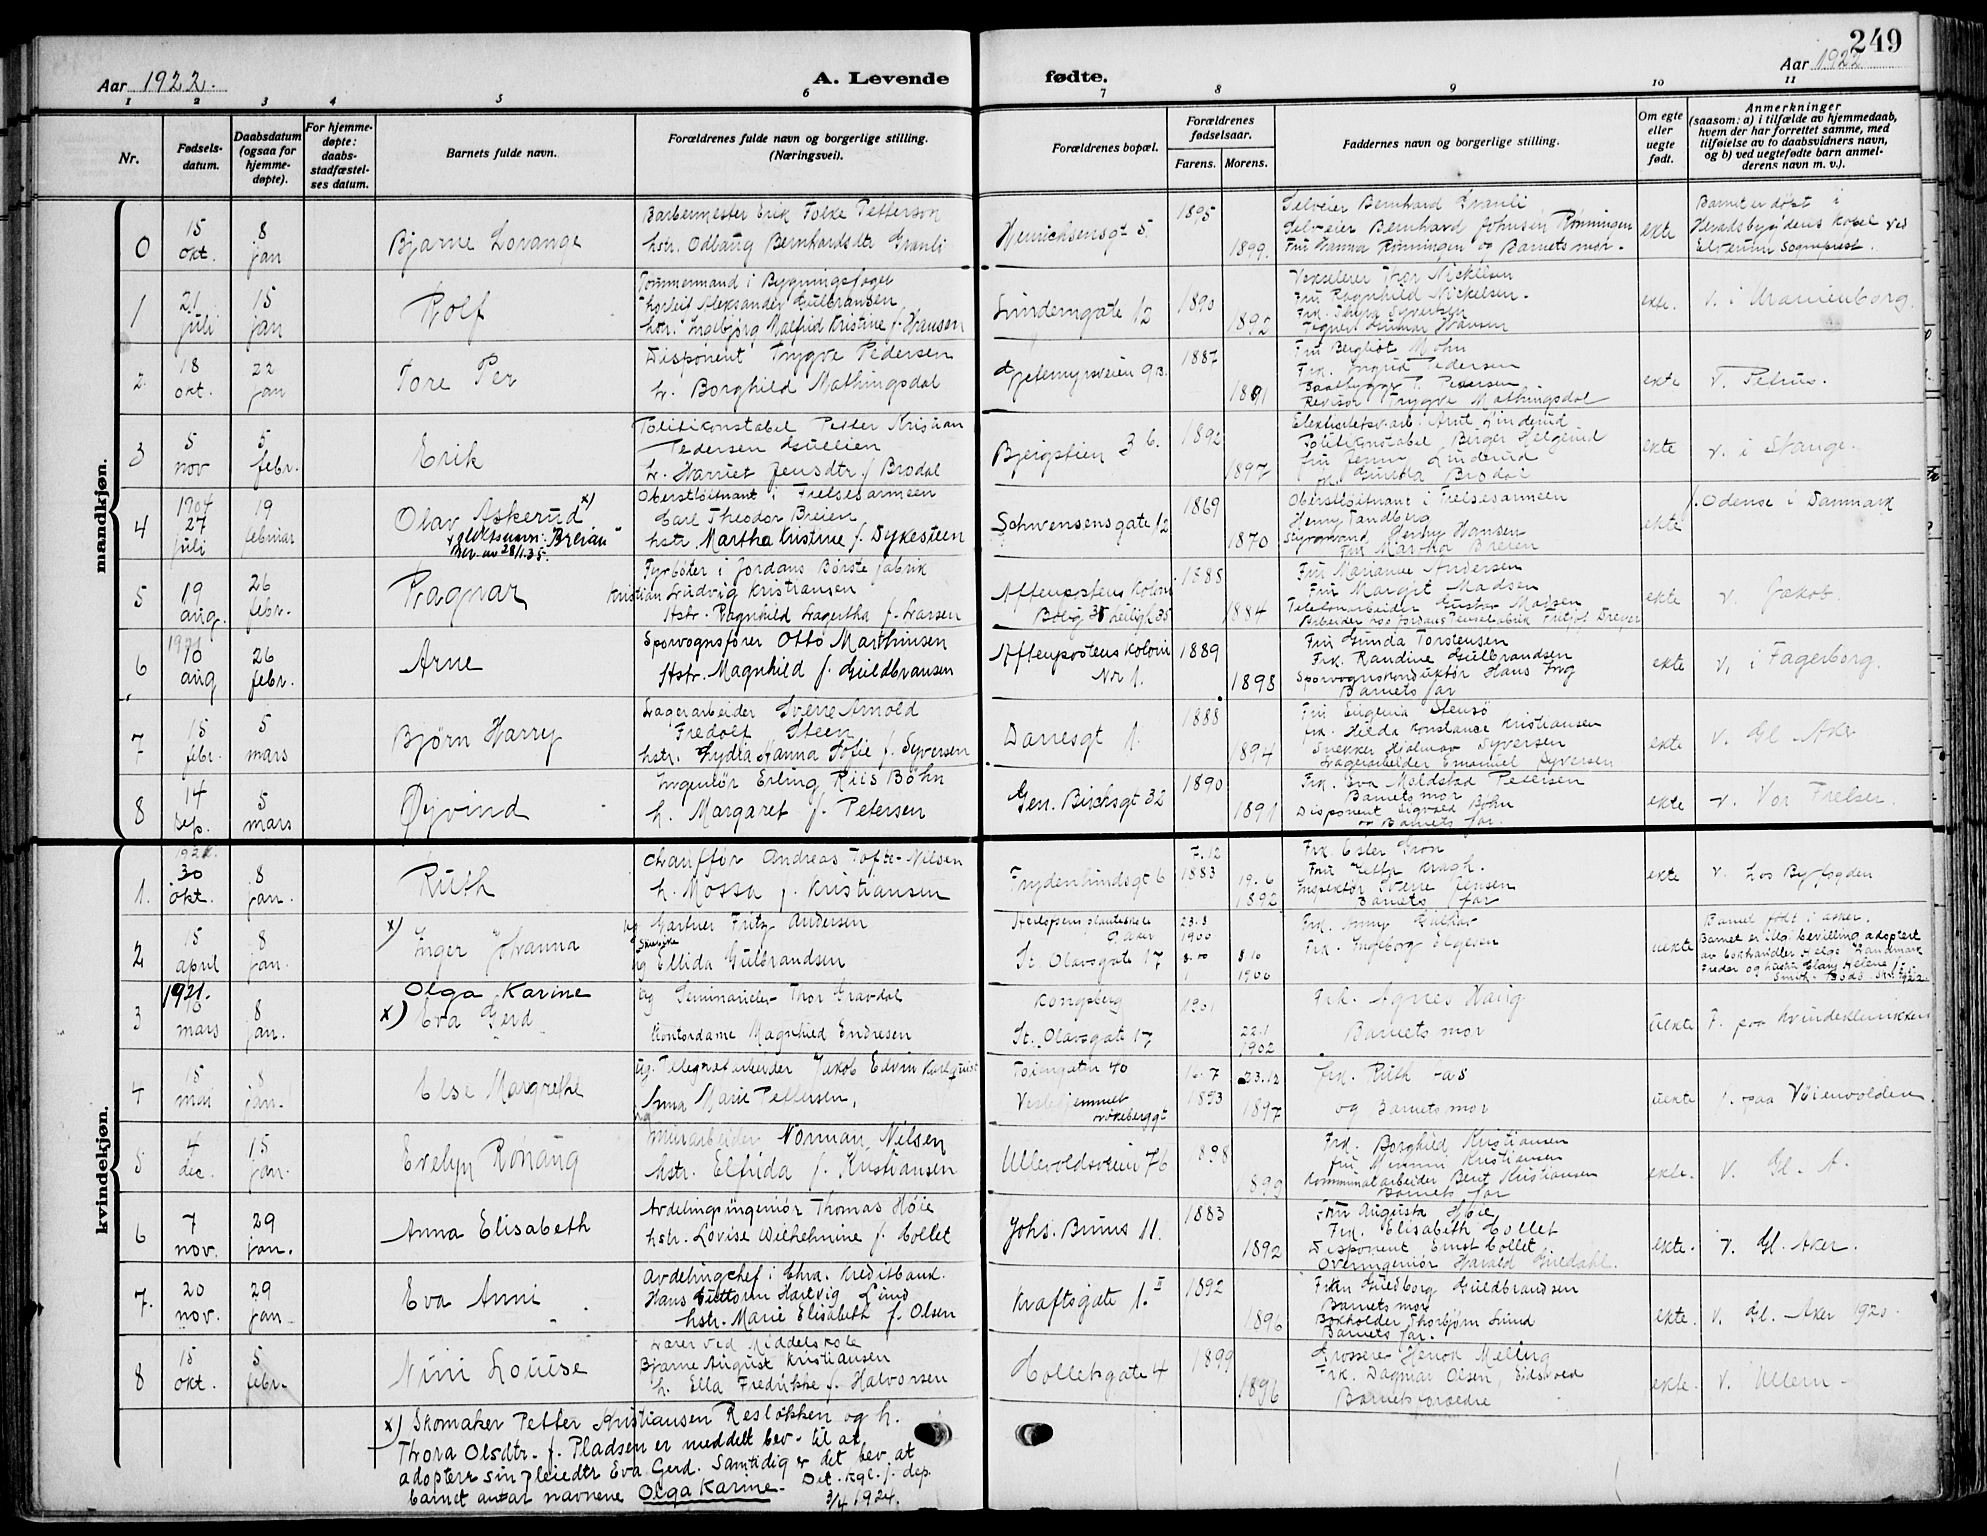 249
Aar 1922.
A. Levende
fødte.
Aar 1922
1 2 3 4 5 6 7 8 9 10 11
Nr.
Fødsels-
datum.
Daabsdatum
(ogsaa for
hjemme-
døpte).
For hjemme-
døpte:
daabs-
stadfæstel-
ses datum.
Barnets fulde navn.
Forældrenes fulde navn og borgerlige stilling.
(Næringsvei).
Forældrenes bopæl.
Forældrenes
fødselsaar.
Farens. Morens.
Faddernes navn og borgerlige stilling.
Om egte
eller
uegte
født.
Anmerkninger
(saasom: a) i tilfælde av hjemmedaab,
hvem der har forrettet samme, med
tilføielse av to daabsvidners navn,
og b) ved uegtefødte barn anmel-
derens navn m. v.).
mandkjøn.
0
15
okt.
8
jan
Bjarne Lorange
Barbermester Erik Folke Petterson
hstr. Odbaug Bernhardsdtr Granli
Henrichsensgt 5
1895
1899.
Selveier Bernhard Granli
Selveier Bernhard Johnsen Rønningen
Fru Hanna Rønningen og Barnets mor.
ekte
Barnet er døpt i
Heradsbygdens Kapel ved
Elverum Sogneprest.
1
21
juli
15
jan
Rolf
Tømmermand i Bygningsfaget
Thorleif Aleksander Gulbransen
hstr. Ingebjørg Mathild Kristine f. Hansen
Linderngate 12
1890
1892
Vekselerer Thor Nickelsen
Fru Ragnhild Nickelsen.
Frk. Thyra Syvertsen
Tegner Gunnar Hansen
ekte.
v. i Uranienborg.
2
18
okt.
22
jan
Tore Per
Disponent Trygve Pedersen
h. Borghild Mathingsdal
Gjetemyrsveien 9B.
1887
1891
Fru Bergliot Mohn
Frk. Ingrid Pedersen
Baatbygger P. Pedersen
Revisor Trygve Mathingsdal
ekte
v. Petrus.
3
5
nov
5
febr.
Erik
Politikonstabel Petter Kristian
Pedersen Gullien
h. Harriet Jensdtr. f. Brodal
Bjergstien 3 b.
1892
1897
Elektisitetsv.arb. Arnt Linderud
Politikonstabel Birger Helgerud
fru Jenny Linderud
frk. Brodal
ekte
v. i Stange.
4
1904
27
juli
19
februar
Olav Askerud x)
slektsnavn: "Breian"
Bev. av 28/1.35.
Oberstløitnant i Frelsesarmeen
Carl Theodor Breien
hstr. Martha Kristine f. Dykesteen
Schwensensgate 12
1869
1870
Oberstløitnant i Frelsesarmeen
Henry Tandberg
Styrmand Henry Hansen
Fru Martha Breien
ekte
f. Odense i Danmark
5
19
aug.
26
febr.
Ragnar
Fyrbøter i Jordans Børstefabrik
Kristian Ludvig Kristiansen
Hstr. Ragnhild Lagertha f. Larsen
Aftenpostens Koloni
Bolig 35 leiligh 35
1888
1884
Fru Marianne Andersen
Fru Margit Madsen
Telefonarbeider Gustav Madsen
Arbeider hos Jordans Penselfabrik Fritjof Dreyer
ekte
v. Jakob.
6
1921
10
aug
26
febr.
Arne
Sporvognsfører Otto Marthinsen
Hstr. Magnhild f. Guldbransen
Aftenpostens Koloni
Nr 1.
1889
1898
Fru Gunda Torstensen
Frk. Randine Gulbrandsen
Sporvognskonduktør Hans Krog
Barnets far
ekte
v. i Fagerborg.
7
15
febr.
5
mars
Bjørn Harry
Lagerarbeider Sverre Arnold
Fredolf Steen
hstr. Lydia Hanna Sofie f. Syversen
Daaesgt 1.
1888
1894
Fru Eugenia Stensø
frk. Hilda Konstance Kristiansen
Snekker Hjalmar Syversen
Lagerarbeider Emanuel Syversen
ekte
v. Gl. Aker
8
14
sep.
5
mars
Øyvind
Ingeniør Erling Riis Bøhn
h. Margaret f. Petersen
Gen. Birchsgt 32
1890
1891
Frk. Eva Moldstad Petersen
Barnets mor
Disponent Sigvald Bøhn
og Barnets far.
ekte
v. Vor Frelser.
kvindekjøn.
1.
1921.
30
okt.
8
jan.
Ruth
Chauffør Andreas Tofte-Nilsen
h. Mossa f. Kristiansen
Frydenlundsgt 6
7.12
1883
19.6
1892
Frk. Ester Gron
Fru Kragh.
Inspektør Sverre Jensen
Barnets far
ekte
v. hos Byfogden
2
15
april
8
jan.
x)
Inger Johanna
Ug Gartner Fritz Andersen
Ug Ellida Gulbrandsen
G. Aker
St. Olavsgate 17
23.3
1900
8.10
1900
Frk. Anny
Frk. Ingeborg
uekte
Barnet født i Asker.
Barnet er iflg. bevilling adoptert
av bokhandler Helge
og hustru Clary Helene
Bodø
3
1921.
mars
8
jan.
Olga Karine
x) Eva Gerd
Ug Seminarielev Thor Gravdal
Kontordame Magnhild Endresen
Kongsberg
St. Olavsgate 17
1901
22.1
1902
Frk. Agnes Haug
Barnets mor
uekte
F. paa Kvindeklinikken
4
15
mai
8
jan.
Else Margrethe
Ug. Telegrafarbeider Jakob Edvin Karlquist
Anna Marie Pettersen,
Tøiengaten 40
1893
23.12
1897
frk. Ruth
og Barnets mor
uekte
f. paa Vøienvolden
5
4
dec.
15
jan.
Evelyn Rønaug
Murarbeider Norman Nilsen
hstr. Elfrida f. Kristiansen
Ullevoldsveien 76
1898
1899
Frk. Borghild Kristiansen
fru Kristiansen
Kommunalarbeider Bent Kristiansen
Barnets far
ekte.
v. Gl. A.
6
7
nov.
29
jan.
Anna Elisabeth
Avdelingsingeniør Thomas Høie
hstr. Lovise Wilhelmine f. Collet
Johs. Bruns 11.
1883
1892
Fru Augusta Høie
Frk. Elisabeth Collet
Disponent Ernst Collet
Overingeniør Harald
ekte.
v. Gl. Aker.
7.
20
nov.
29
jan
Eva Anni
Avdelingschef i Chra. Kreditbank.
Hans Guttorm Hartvig Lund
hstr. Marie Elisabeth f. Olsen
Kraftsgate 1.II
1892
1896
Frkn Guldborg Guldbrandsen
Barnets mor
Bokholder Thorbjørn Lund
Barnets far.
ekte.
v. Gl. Aker 1920.
8
15
okt.
5
febr.
Nini Louise
Lærer ved Middelskole
Bjarne August Kristiansen
h. Ella Fredrikke f. Halvorsen
Colletsgate 4
1899
1896
Grosserer Henrik Melling
Frk. Dagmar Olsen, Eidsvold
Barnets forældre
ekte.
v. Ullern.
x) Skomaker Petter Kristiansen Resløkken og h.
Thora Olsdtr. f. Pladsen er meddelt bev. til at
adoptere sin pleiedtr Eva Gerd. Samtidig er det bev. at
barnet antar navnene Olga Karine. Det. kgl. f. dep.
3/4 1924.